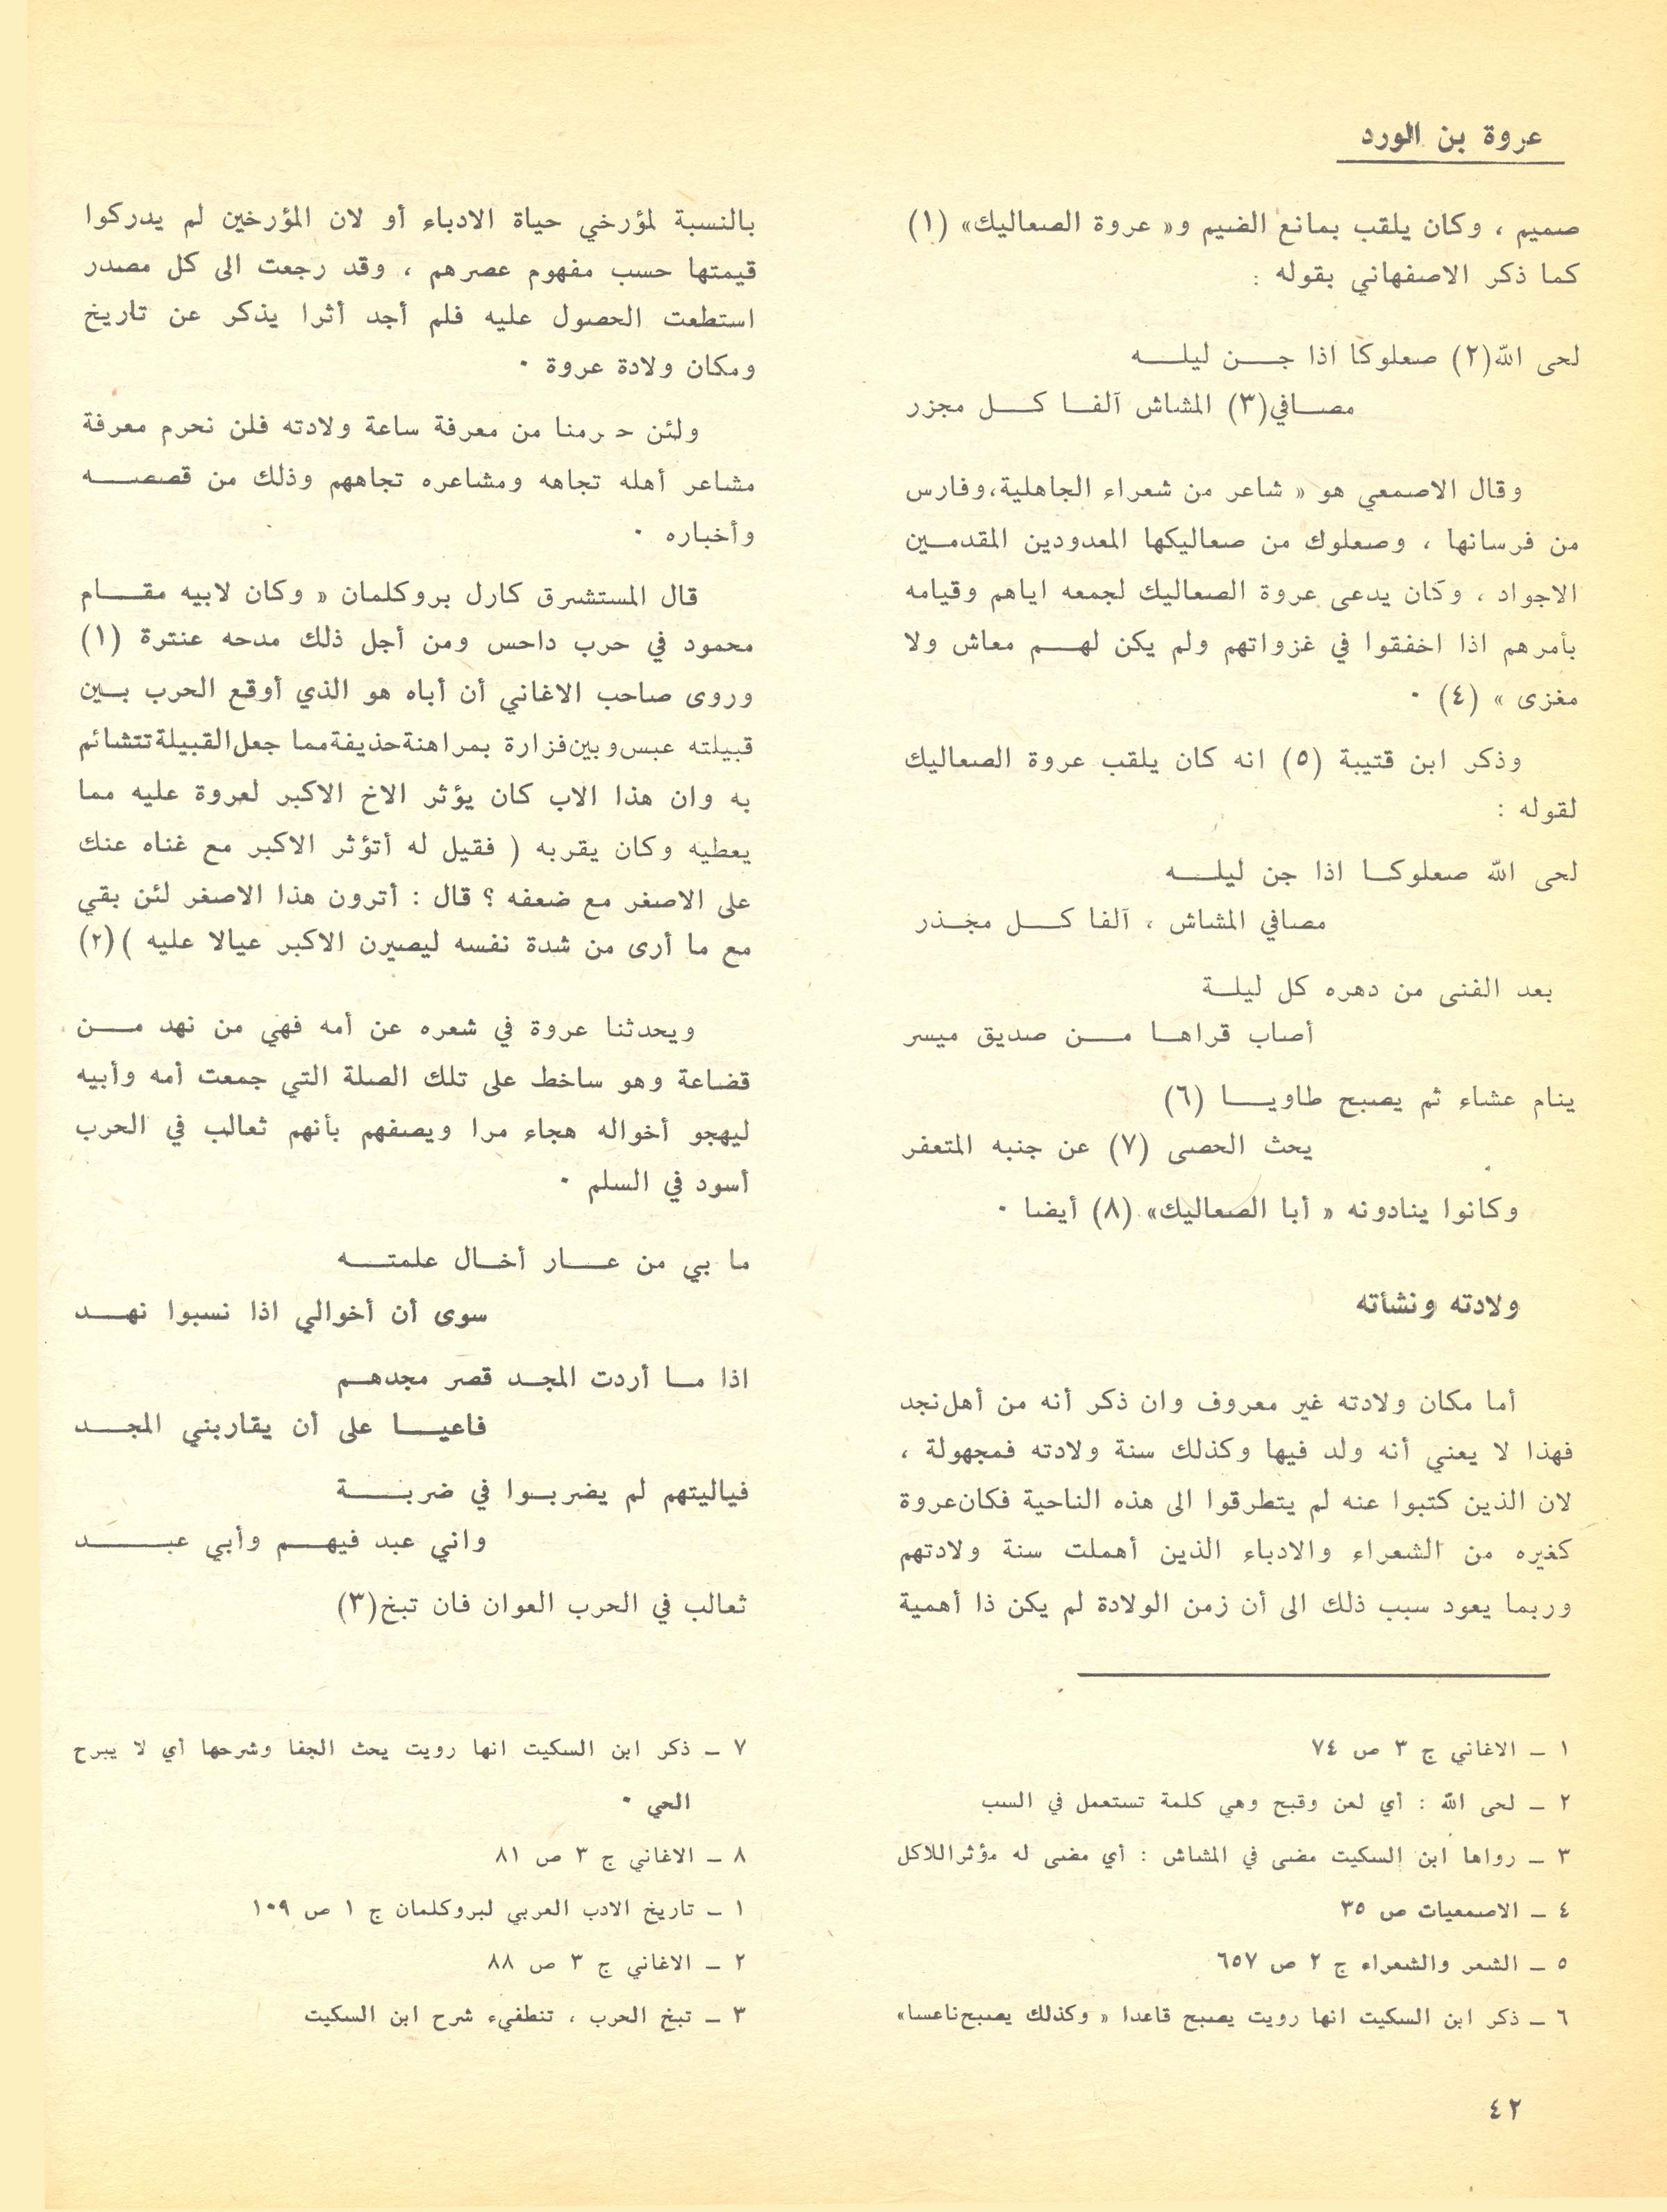 عروة بن الورد
صميم ، وكان يلقب بمانع الضيم و« عروة الصعاليك» (١)
كما ذكر الاصفهاني بقوله :
لحى الله(٢) صعلوكا اذا جـــن ليلـــه
مصـــافي(٣) المشاش آلفـــا كـــل مجزر
وقال الاصمعي هو « شاعر من شعراء الجاهلية،وفارس
من فرسانها ، وصعلوك من صعاليكها المعدودين المقدمـــين
الاجواد ، وكان يدعى عروة الصعاليك لجمعه اياهم وقيامه
بأمرهم اذا اخفقوا في غزواتهم ولم يكن لهـــم معاش ولا
مغزى » (٤) ٠
وذكر ابن قتيبة (٥) انه كان يلقب عروة الصعاليك
لقوله :
لحى الله صعلوكـــا اذا جن ليلـــه
مصافي المشاش ، آلفا كـــل مجـذر
بعد الفنى من دهره كل ليلـــة
أصاب قراهـــا مـــن صديق ميسر
ينام عشاء ثم يصبح طاويـــا (٦)
يحث الحصى (٧) عن جنبه المتعفر
وكانوا ينادونه « أبا الصعاليك» (٨) أيضا ٠
ولادته ونشأته
أما مكان ولادته غير معروف وان ذكر أنه من أهل نجد
فهذا لا يعني أنه ولد فيها وكذلك سنة ولادته فمجهولة ،
لان الذين كتبوا عنه لم يتطرقوا الى هذه الناحية فكان عروة
كغيره من الشعراء والادباء الذين أهملت سنة ولادتهم
وربما يعود سبب ذلك الى أن زمن الولادة لم يكن ذا أهمية
بالنسبة لمؤرخي حياة الادباء أو لان المؤرخين لم يدركوا
قيمتها حسب مفهوم عصرهم ، وقد رجعت الى كل مصدر
استطعت الحصول عليه فلم أجد أثرا يذكر عن تاريخ
ومكان ولادة عروة ٠
ولئن حرمنا من معرفة ساعة ولادته فلن نحرم معرفة
مشاعر أهله تجاهه ومشاعره تجاههم وذلك من قصصـــه
وأخباره ٠
قال المستشرق كارل بروكلمان « وكان لابيه مقـــام
محمود في حرب داحس ومن أجل ذلك مدحه عنترة (١)
وروى صاحب الاغاني أن أباه هو الذي أوقع الحرب بـــين
قبيلته عبس وبين فزارة بمراهنة حذيفة مما جعل القبيلة تتشائم
به وان هذا الاب كان يؤثر الاخ الاكبر لعروة عليه مما
يعطيه وكان يقربه ( فقيل له أتؤثر الاكبر مع غناه عنك
على الاصغر مع ضعفه ؟ قال : أترون هذا الاصغر لئن بقي
مع ما أرى من شدة نفسه ليصيرن الاكبر عيالا عليه )(٢)
ويحدثنا عروة في شعره عن أمه فهي من نهد مـــن
قضاعة وهو ساخط على تلك الصلة التي جمعت أمه وأبيه
ليهجو أخواله هجاء مرا ويصفهم بأنهم ثعالب في الحرب
أسود في السلم ٠
ما بي من عـــار أخـــال علمتـــه
سوى أن أخوالي اذا نسبوا نهـــد
اذا مـــا أردت المجـــد قصر مجدهـــم
فاعيـــا على أن يقاربني المجـــد
فياليتهم لم يضربـــوا في ضربـــة
واني عبد فيهـــم وأبي عبـــد
ثعالب في الحرب العوان فان تبخ(٣)
١ – الاغاني ج ٣ ص ٧٤
٢ – لحى الله : أي لعن وقبح وهي كلمة تستعمل في السب
٣ – رواها ابن السكيت مضى في المشاش : أي مضى له مؤثراللاكل
٤ – الاصمعيات ص ٣٥
٥ – الشعر والشعراء ج ٢ ص ٦٥٧
٦ – ذكر ابن السكيت انها رويت يصبح قاعدا « وكذلك يصبح ناعسا»
٧ – ذكر ابن السكيت انها رويت يحث الجفا وشرحها أي لا يبرح
الحي ٠
٨ – الاغاني ج ٣ ص ٨١
١ – تاريخ الادب العربي لبروكلمان ج ١ ص ١٠٩
٢ – الاغاني ج ٣ ص ٨٨
٣ – تبخ الحرب ، تنطفيء شرح ابن السكيت
٤٢